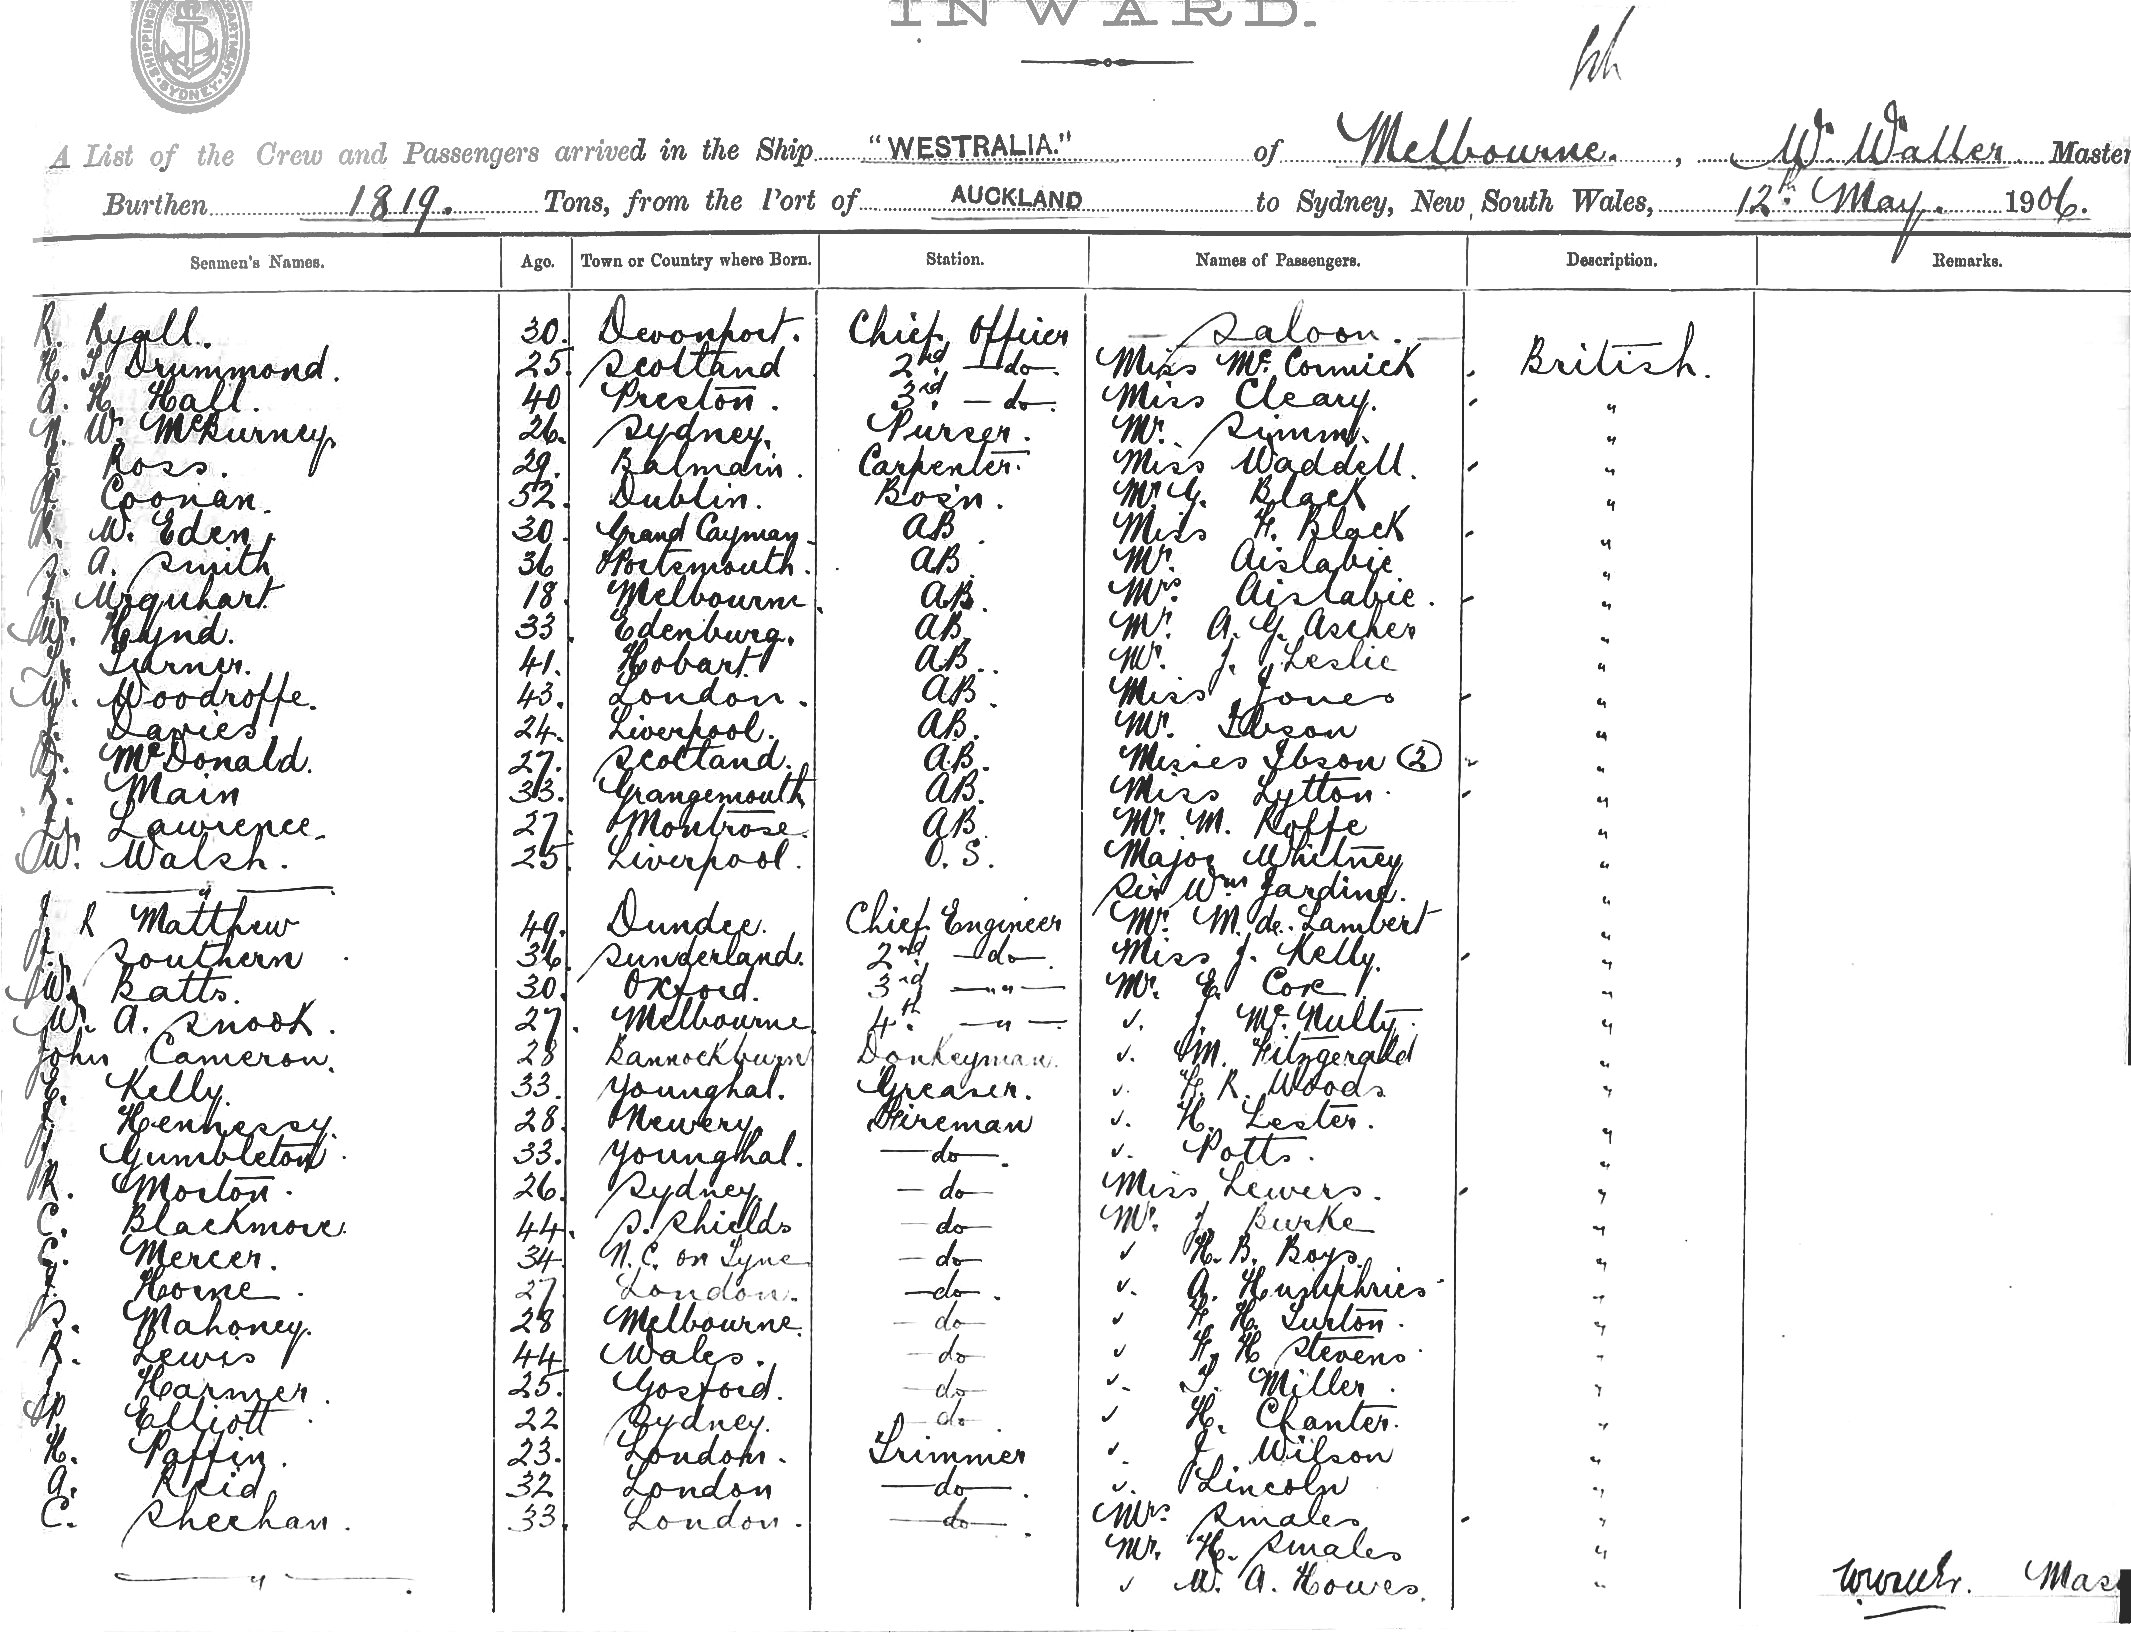 INWARD.
SHIPPING DEPARTMENT SYDNEY
A List of the Crew and Passengers arrived in the Ship "WESTRALIA." of Melbourne. , W. Waller Master
Burthen 1819. Tons, from the Port of AUCKLAND to Sydney, New South Wales, 12th May. 1906.
Seamen's Names. Age. Town or Country where Born. Station. Names of Passengers. Description. Remarks.
R. Ryall. 30. Devonport. Chief Officer — Saloon. —
H. T. Drummond. 25. Scotland 2nd — do. Miss McCormick British.
A. H. Hall. 40 Preston. 3rd — do. Miss Cleary. "
N. W. McBurney. 26. Sydney. Purser. Mr. Simm. "
Ross. 29. Balmain. Carpenter. Miss Waddell. "
Coonan. 52. Dublin. Bos'n. Mr. G. Black "
R. W. Eden. 30. Grand Cayman. AB. Miss F. Black "
S. A. Smith 36 Portsmouth. AB. Mr. Aislabie "
J. Urquhart 18. Melbourne AB. Mrs. Aislabie. "
W. Hynd. 33. Edenburg. AB. Mr. A. G. Ascher "
T. Turner. 41. Hobart AB. Mr. J. Leslie "
W. Woodroffe. 43. London. AB. Miss Jones "
J. Davies. 24. Liverpool. AB. Mr. Ibson "
D. McDonald. 27. Scotland. AB. Misses Ibson (2) "
R. Main 33. Grangemouth AB. Miss Lytton. "
Lawrence. 27. Montrose. AB. Mr. M. Roffe "
W. Walsh. 25. Liverpool. O.S. Major Whitney "
— " — Sir Wm Jardine. "
J. R Matthew 49. Dundee. Chief Engineer Mr. M. de. Lambert "
J. Southern 36. Sunderland. 2nd — do — Miss J. Kelly. "
W. Batts. 30. Oxford. 3rd — " — Mr. E. Cox "
W. A. Snook. 27. Melbourne 4th. — " — " J. McNulty. "
John Cameron. 28 Bannockburn Donkeyman. " M. Fitzgerald "
E. Kelly. 33. Younghal. Greaser. " F. R. Woods "
Hennessy. 28. Newery. Fireman " H. Lester. "
Gumbleton. 33. Younghal. — do — " Potts. "
R. Morton. 26. Sydney. — do — Miss Lewers. "
C. Blackmore. 44. S. Shields — do — Mr. J. Burke "
C. Mercer. 34 N. C. on Tyne — do — " H. B. Boys. "
J. Horne. 27 London. — do — " A. Humphries "
S. Mahoney. 28 Melbourne. — do " F. H. Turton. "
R. Lewis 44 Wales. — do " F. H Stevens "
J. Harmer. 25. Gosford. — do — " T. Miller. "
Elliott 22 Sydney. — do " H. Chanter. "
H. Paffin. 23. London. Trimmer " J. Wilson "
A. Reid 32 London — do — " Lincoln "
C. Sheehan. 33. London. — do — Mrs. Smales "
Mr. H. Smales "
— " — " W. A. Howes. " W. Waller. Mas